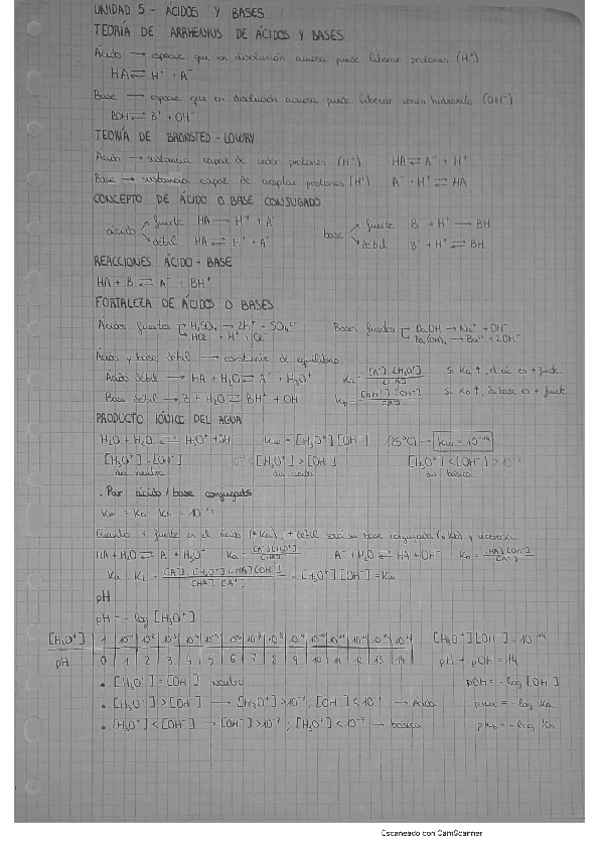 UNIDAD 5 - ÁCIDOS Y BASES
TEORÍA DE ARRHENIUS DE ÁCIDOS Y BASES
Ácido → especie que en disolución acuosa puede liberar protones (H⁺)
HA ⇌ H⁺ + A⁻
Base → especie que en disolución acuosa puede liberar iones hidroxilo (OH⁻)
BOH ⇌ B⁺ + OH⁻
TEORÍA DE BRONSTED - LOWRY
Ácido → sustancia capaz de ceder protones (H⁺) HA ⇌ A⁻ + H⁺
Base → sustancia capaz de aceptar protones (H⁺) A⁻ + H⁺ ⇌ HA
CONCEPTO DE ÁCIDO O BASE CONJUGADO
ácido fuerte HA → H⁺ + A⁻ base fuerte B + H⁺ → BH
débil HA ⇌ H⁺ + A⁻ débil B⁻ + H⁺ ⇌ BH
REACCIONES ÁCIDO - BASE
HA + B ⇌ A⁻ + BH⁺
FORTALEZA DE ÁCIDOS O BASES
Ácidos fuertes H₂SO₄ → 2H⁺ + SO₄²⁻ Bases fuertes → Na⁺ + OH⁻
HCl → H⁺ + Cl⁻ Ba(OH)₂ → Ba²⁺ + 2OH⁻
Ácido y base débil → constante de equilibrio
Ácido débil → HA + H₂O ⇌ A⁻ + H₃O⁺ Ka = [A⁻]·[H₃O⁺] / [HA] Si Ka ↑, el ác es + fuerte
Base débil → B + H₂O ⇌ BH⁺ + OH Kb = [BH⁺]·[OH⁻] / [B] Si Kb ↑, la base es + fuerte
PRODUCTO IÓNICO DEL AGUA
H₂O + H₂O ⇌ H₃O⁺ + OH⁻ Kw = [H₃O⁺][OH⁻] (25ºC) → Kw = 10⁻¹⁴
[H₃O⁺] = [OH⁻] [H₃O⁺] > [OH⁻] [H₃O⁺] < [OH⁻]
dis neutra dis ácida dis básica
· Par ácido/base conjugado
Kw = Ka · Kb = 10⁻¹⁴
Cuanto + fuerte es el ácido (↑Ka), + débil será su base conjugada (↓Kb) y viceversa
HA + H₂O ⇌ A⁻ + H₃O⁺ Ka = [A⁻][H₃O⁺] / [HA] A⁻ + H₂O ⇌ HA + OH⁻ Kb = [HA][OH⁻] / [A⁻]
Ka · Kb = [A⁻]·[H₃O⁺]·[HA][OH⁻] / [HA]·[A⁻] = [H₃O⁺][OH⁻] = Kw
pH
pH = -log [H₃O⁺]
[H₃O⁺] 1 10⁻¹ 10⁻² 10⁻³ 10⁻⁴ 10⁻⁵ 10⁻⁶ 10⁻⁷ 10⁻⁸ 10⁻⁹ 10⁻¹⁰ 10⁻¹¹ 10⁻¹² 10⁻¹³ 10⁻¹⁴ [H₃O⁺][OH⁻] = 10⁻¹⁴
pH 0 1 2 3 4 5 6 7 8 9 10 11 12 13 14 pH + pOH = 14
• [H₃O⁺] = [OH⁻] neutro pOH = -log [OH⁻]
• [H₃O⁺] > [OH⁻] → [H₃O⁺] > 10⁻⁷ ; [OH⁻] < 10⁻⁷ → Ácida pKa = -log Ka
• [H₃O⁺] < [OH⁻] → [OH⁻] > 10⁻⁷ ; [H₃O⁺] < 10⁻⁷ → básica pKb = -log Kb
Escaneado con CamScanner